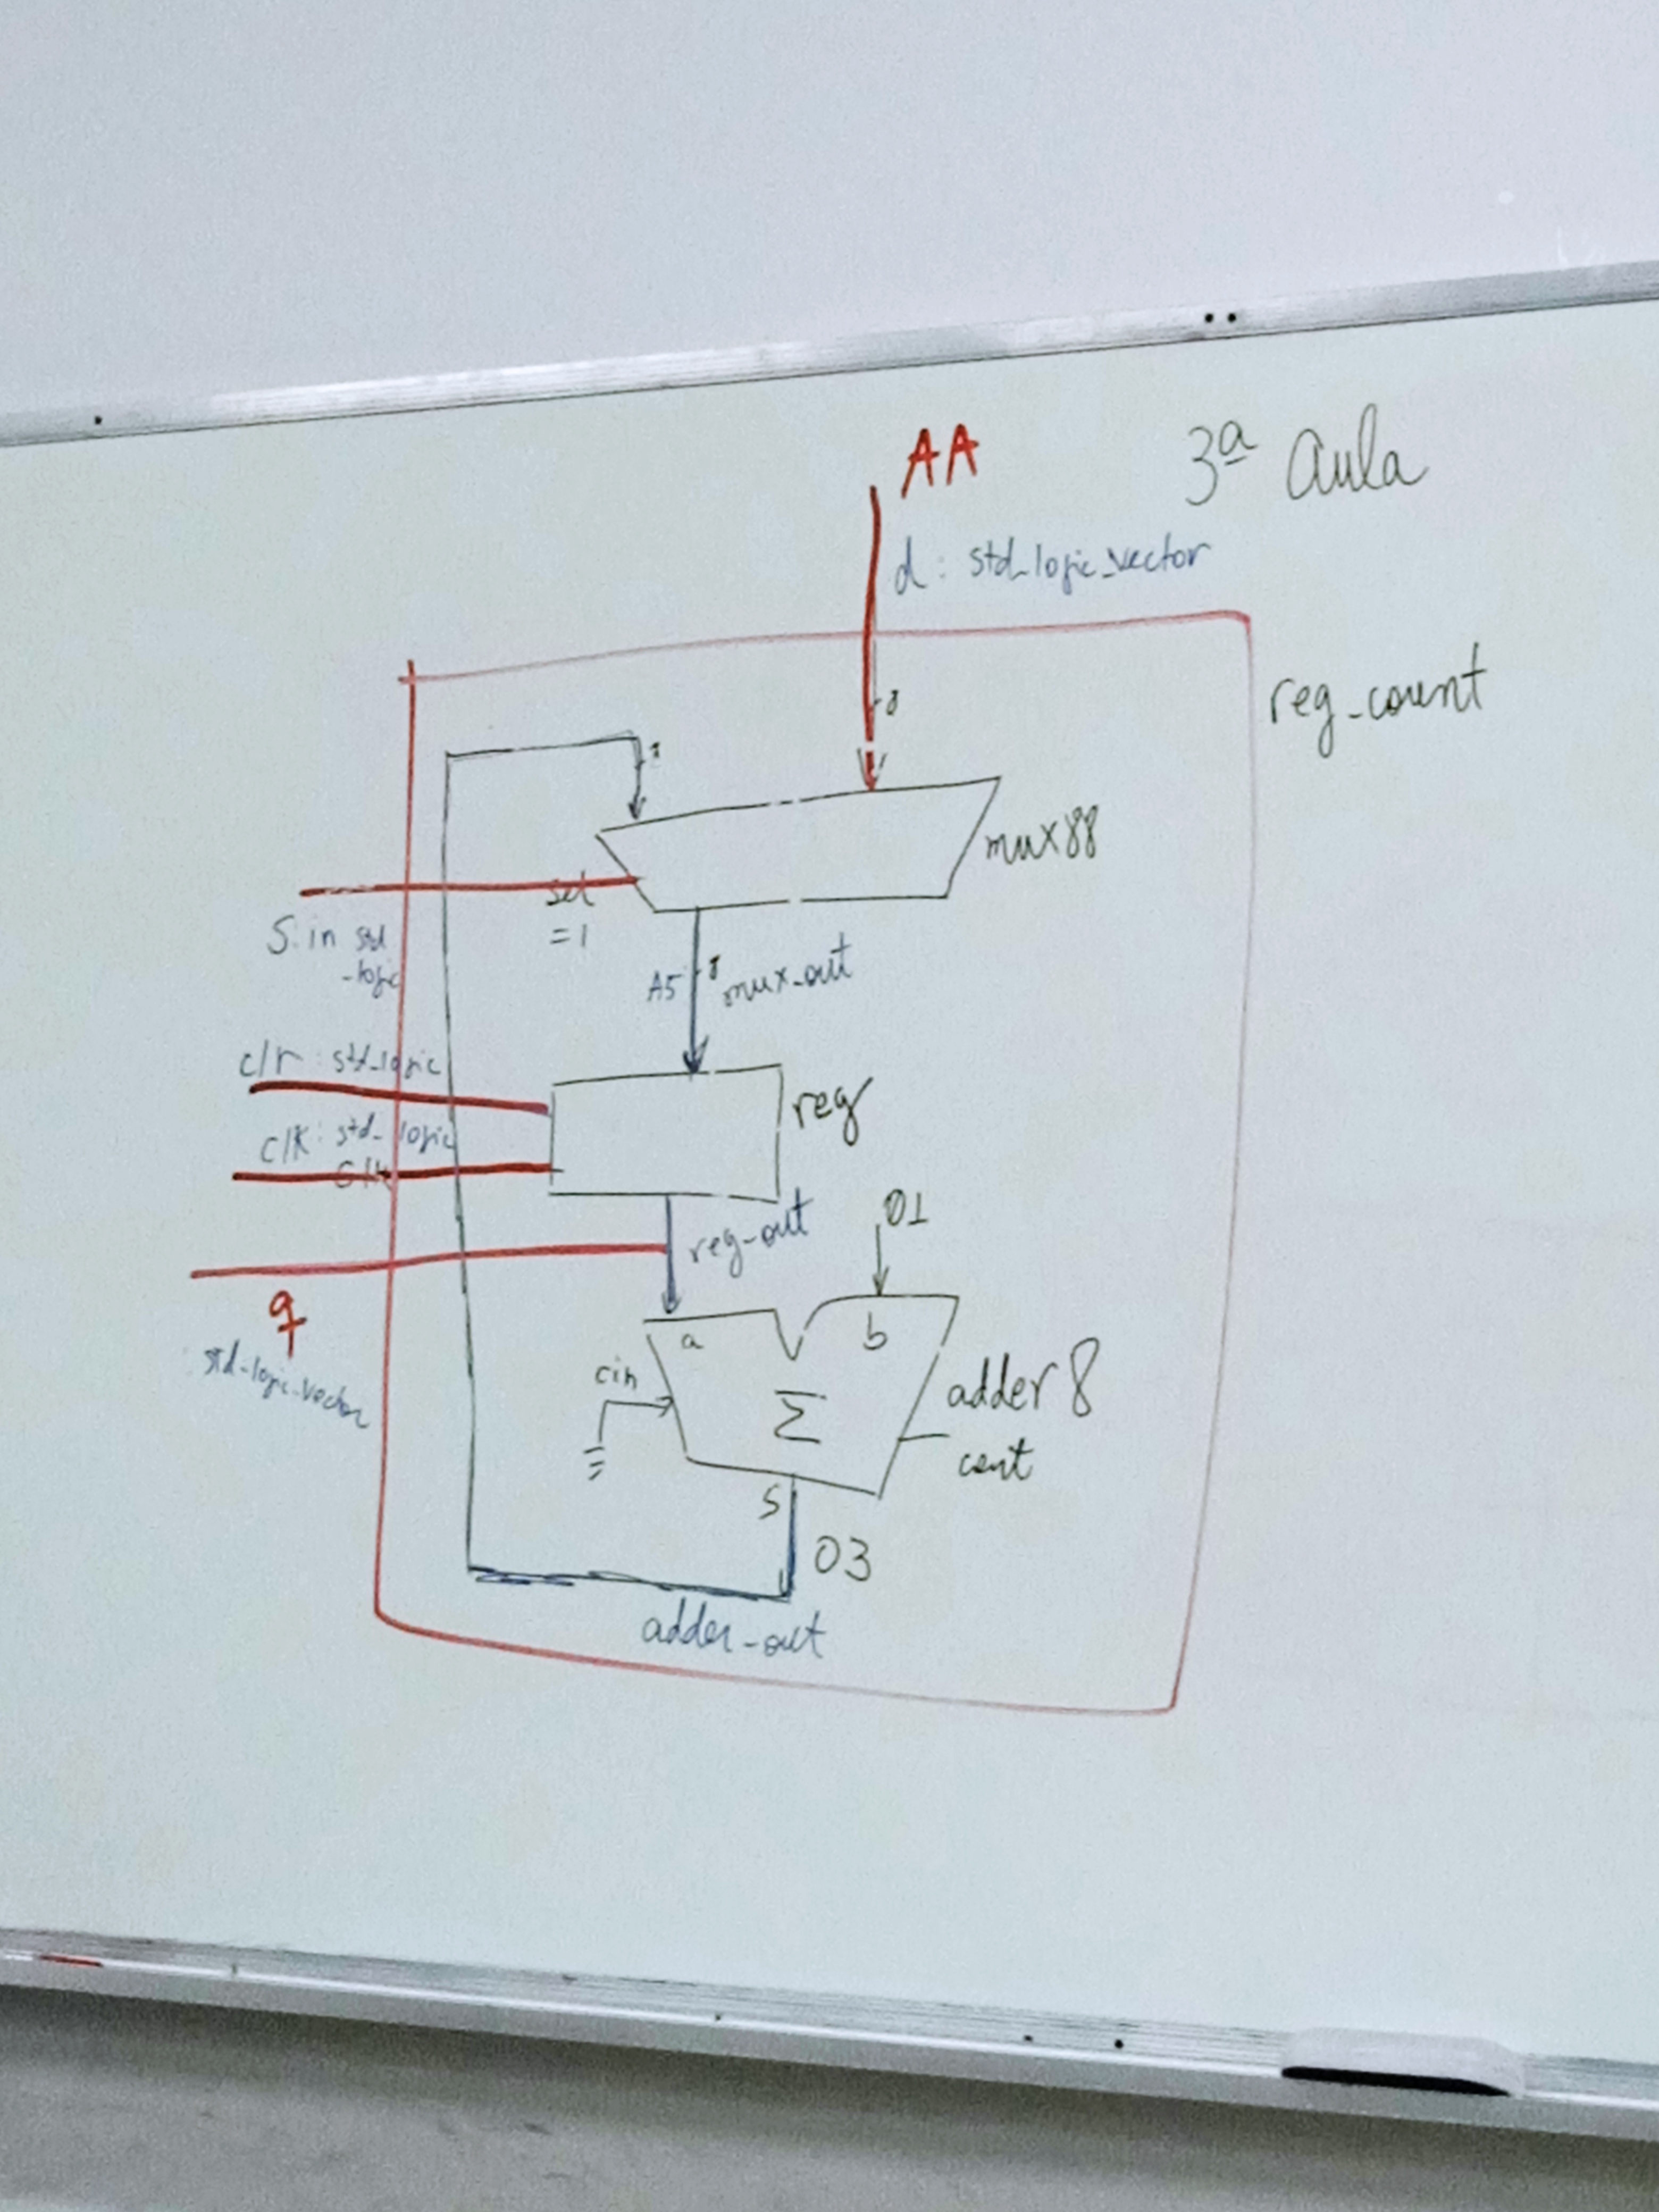 AA
3ª Aula
d: std_logic_vector
reg_count
8
mux88
sel
=1
S: in std
_logic
A5
8
mux_out
clr: std_logic
reg
clk: std_logic
clk
reg_out
01
q
: std_logic_vector
a
b
cin
Σ
adder 8
cout
S
03
adder_out